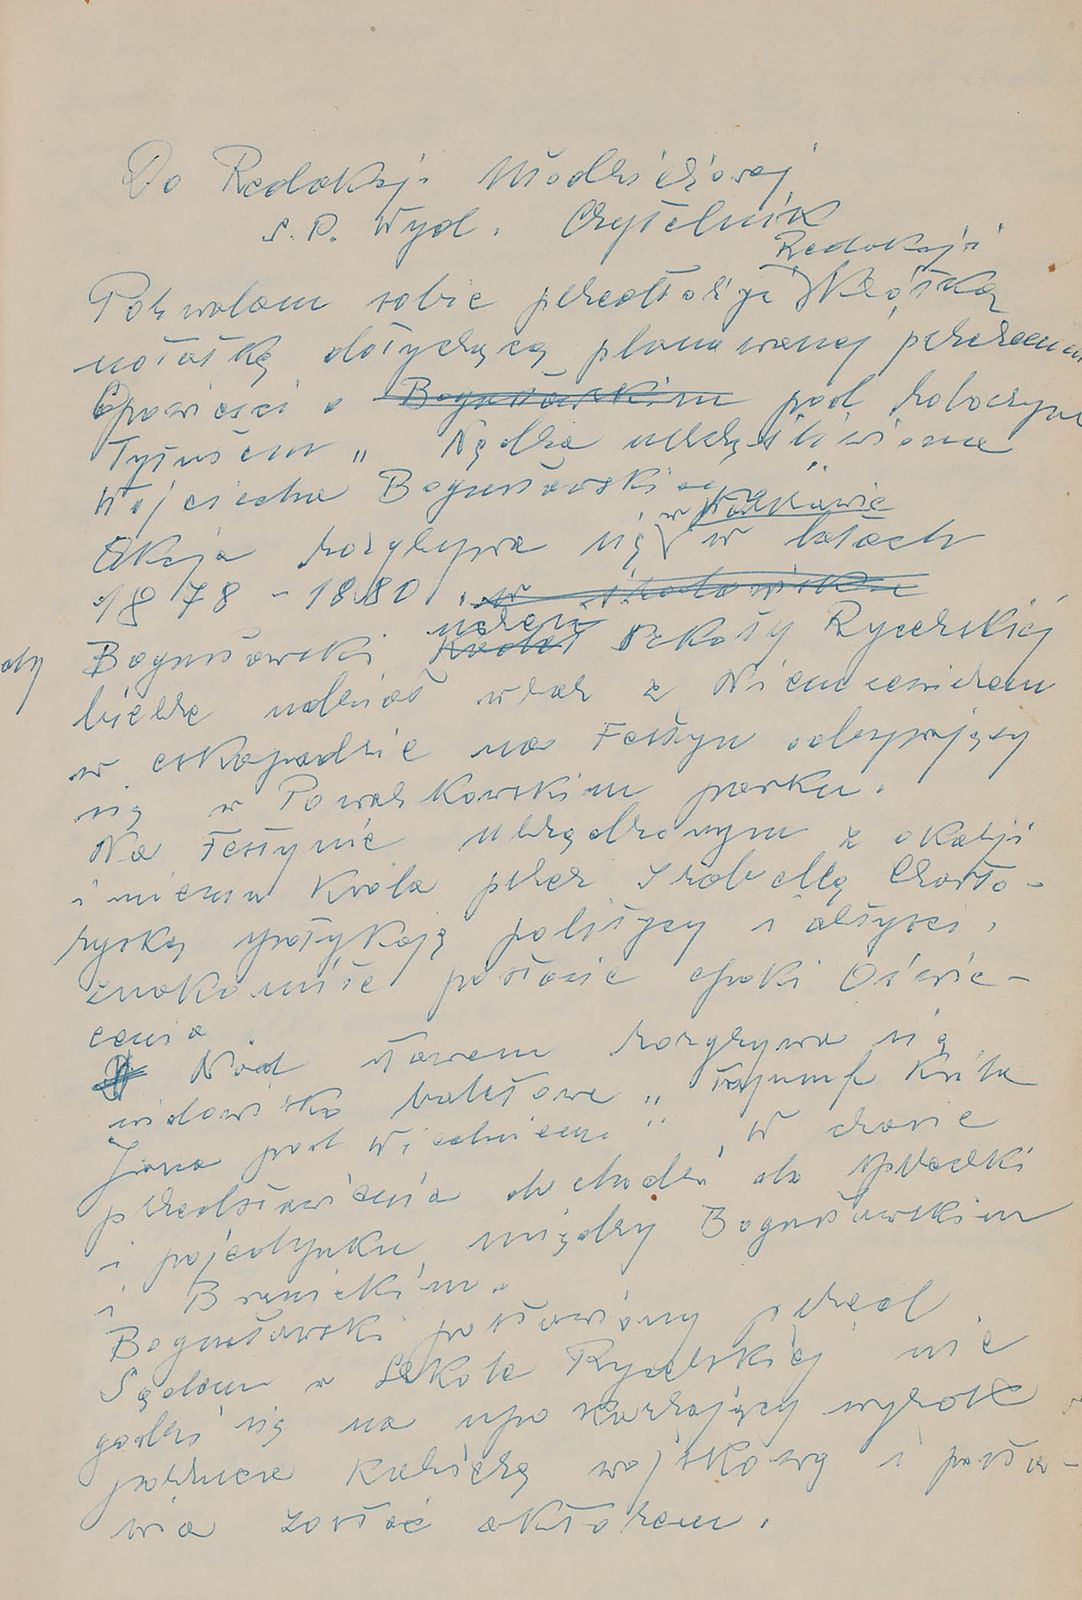 Do Redakcji Młodzieżowej
S.P. Wyd. Czytelnik
Redakcji
Pozwalam sobie przedłożyć krótką
notatkę dotyczącą planowanej przezemnie
Opowieści o Bogusławskim pod roboczym
Tytułem „Nędza uszczęśliwiona
Wojciecha Bogusławskiego
w Warszawie
Akcja rozgrywa się w latach
1878-1880. w środowisku
uczeń
Bogusławski Kadet Szkoły Rycerskiej
bierze udział wraz z Niemcewiczem
w eskapadzie na Festyn odbywający
się w Powązkowskim parku.
Na Festynie urządzonym z okazji
imienin Króla przez Izabellę Czarto-
ryską spotykają politycy i artyści,
znakomite postacie epoki Oświe-
cenia
Nad stawem rozgrywa się
widowisko baletowe „Tryumf Króla
Jana pod Wiedniem". W czasie
przedstawienia dochodzi do sprzeczki
i pojedynku między Bogusławskim
i Branickim.
Bogusławski postawiony przed
Sądem w Szkole Rycerskiej nie
godzi się na upokarzający wyrok
porzuca karierę wojskową i posta-
wia zostać aktorem.